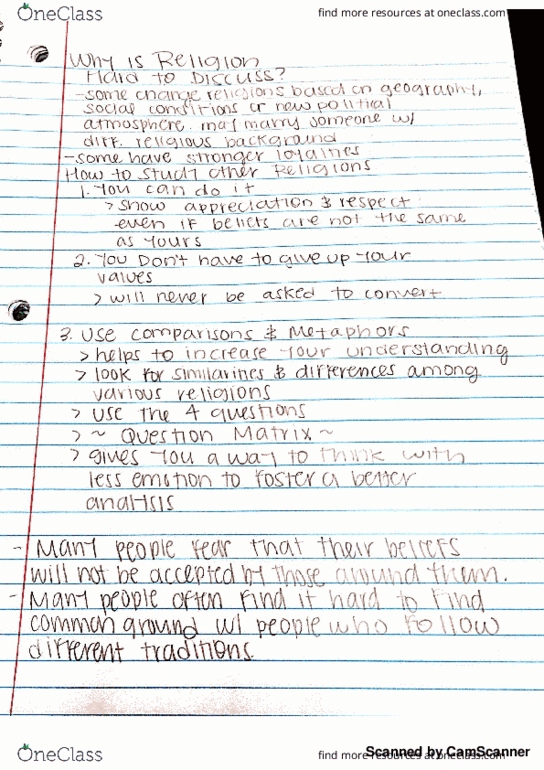 OneClass
find more resources at oneclass.com
Why is Religion
Hard to Discuss?
-some change religions based on geography,
social conditions or new political
atmosphere. may marry someone w/
diff. religious background
-some have stronger loyalties
How to study other Religions
1. You can do it
> show appreciation & respect
even if beliefs are not the same
as yours
2. You Don't have to give up your
values
> will never be asked to convert
3. Use comparisons & Metaphors
> helps to increase your understanding
> look for similarities & differences among
various religions
> use the 4 questions
> ~ Question Matrix ~
> gives you a way to think with
less emotion to foster a better
analysis
- Many people fear that their beliefs
will not be accepted by those around them.
- Many people often find it hard to find
common ground w/ people who follow
different traditions.
OneClass
find more resources at oneclass.com
Scanned by CamScanner